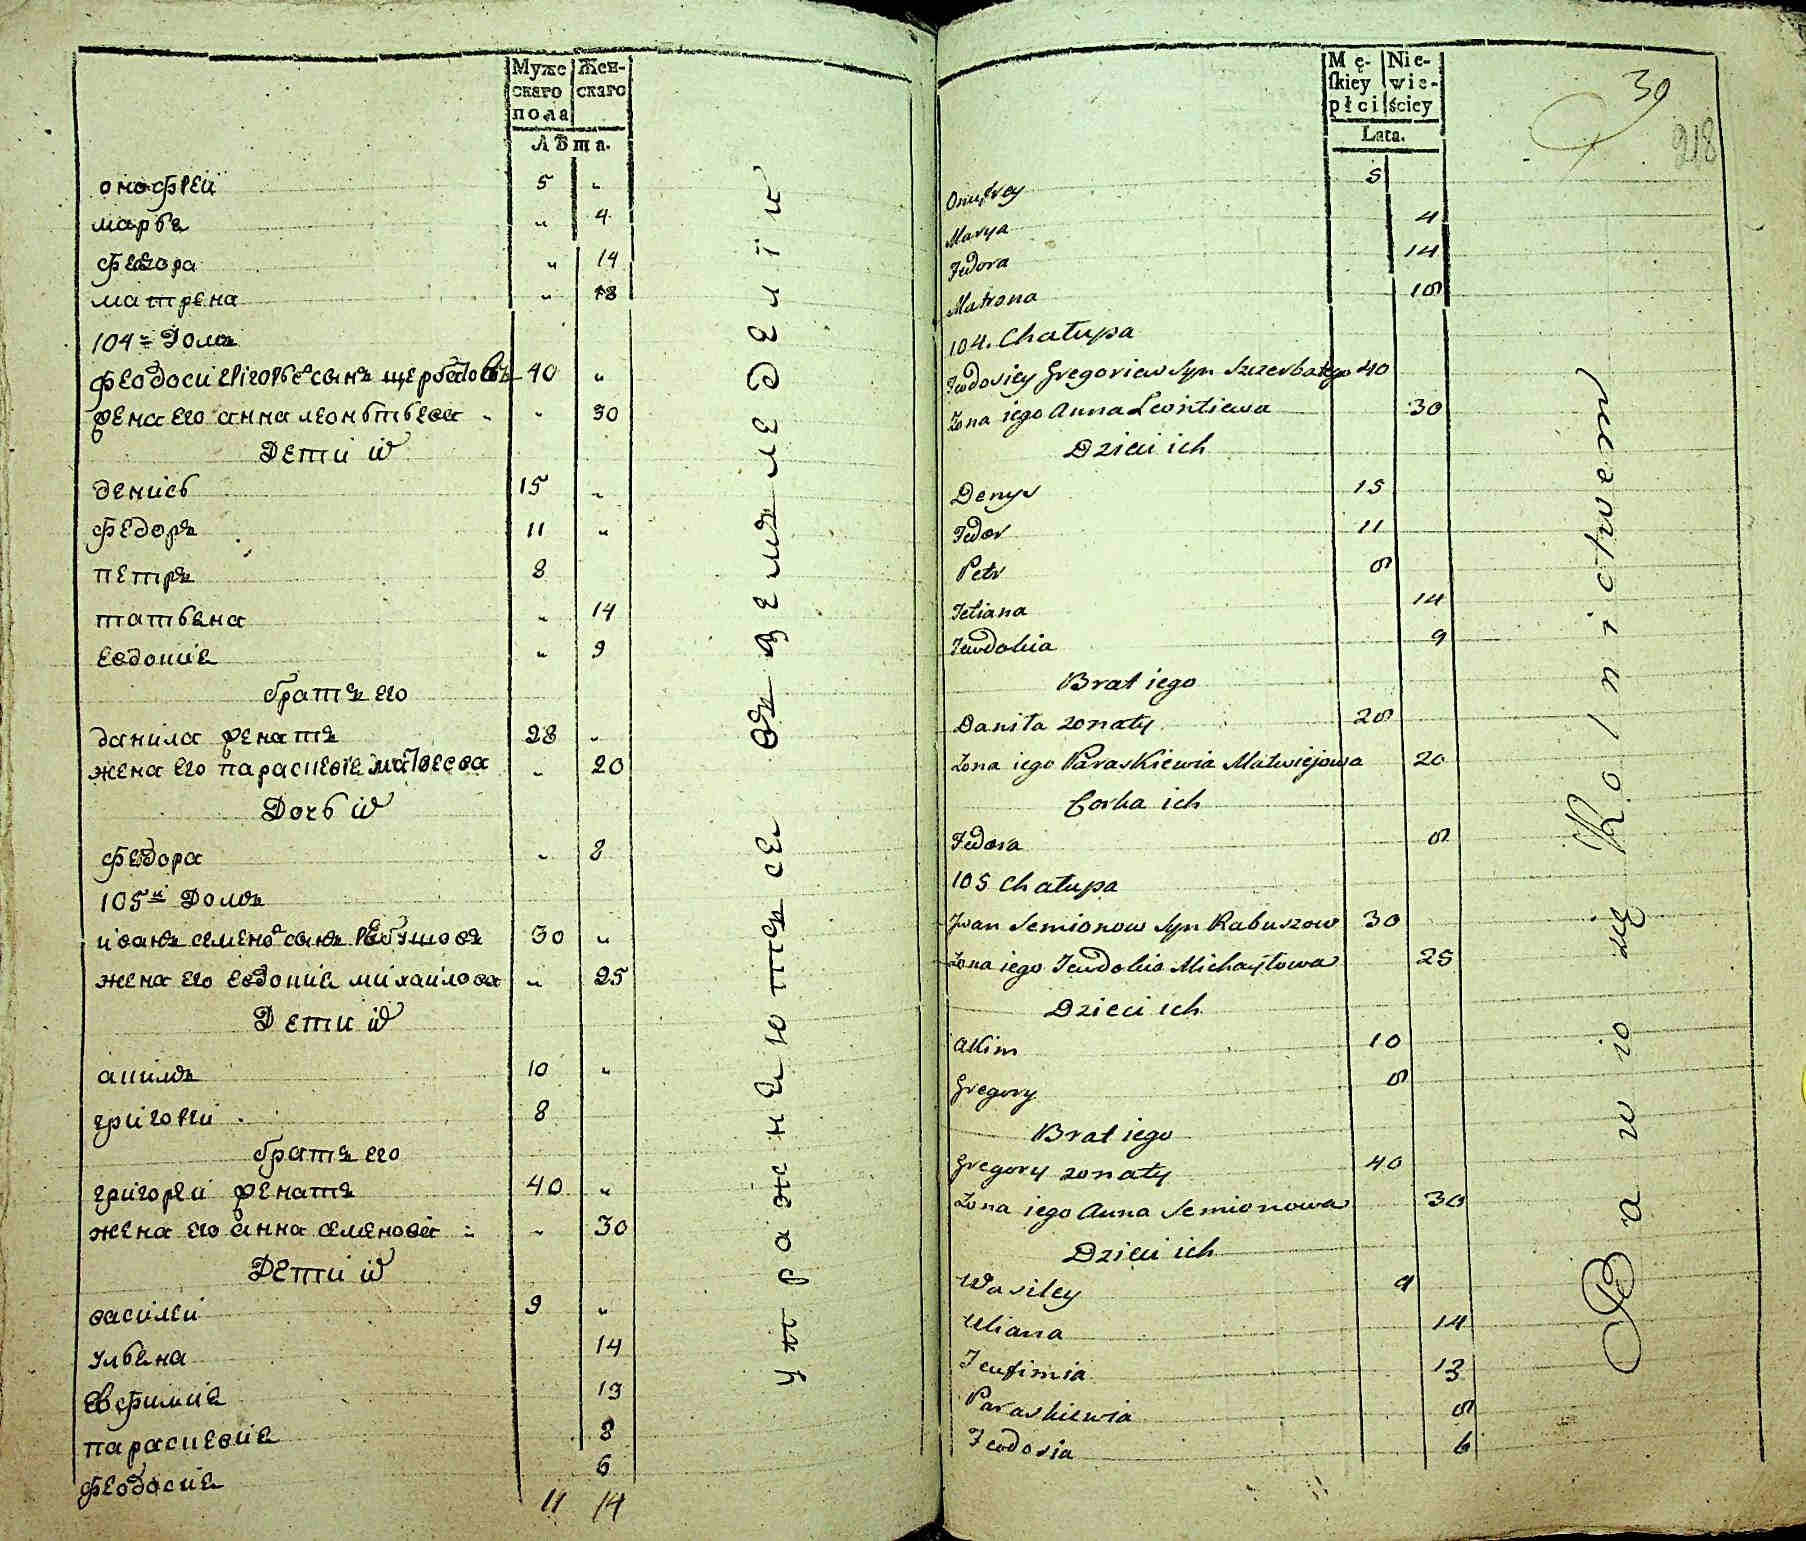 Муже
скаго
пола
Жен-
скаго
Лѣта.
онофреи 5 „
марья „ 4
федора „ 14
матрена „ 18
104й Домъ
феодоси григорьевъ сынъ щербатовъ 40 „
жена его анна леонтьева „ 30
Дети их
денись 15 „
федоръ 11 „
петръ 8
татьяна „ 14
евдокия „ 9
братъ его
данила женатъ 28 „
жена его параскевия матвеева „ 20
Дочь их
федора „ 8
105й Домъ
иванъ семеновъ сынъ рабушовъ 30 „
жена его евдокия михаилова „ 25
Дети их
акимъ 10 „
григореи 8
братъ его
григореи женатъ 40 „
жена его анна семенова „ 30
Дети их
василеи 9 „
ульяна 14
евфимия 13
параскевия 8
феодосия 6
11 14
упражняются въ земледелiи
Mę-
skiey
płci
Nie-
wie-
ściey
Lata.
39
218
Onufrey 5
Marya 4
Fedora 14
Matrona 18
104. Chałupa
Feodosiey Gregoriew Syn Szczerbatego 40
Żona iego Anna Leontiewa 30
Dzieci ich
Denys 15
Fedor 11
Petr 8
Tetiana 14
Jewdokia 9
Brat iego
Daniła żonaty 28
Żona iego Paraskiewia Matwiejowa 20
Corka ich
Fedora 8
105 Chałupa
Jwan Semionow Syn Rabuszow 30
Żona iego Jewdokia Michayłowa 25
Dzieci ich
Akim 10
Gregory 8
Brat iego
Gregory żonaty 40
Żona iego Anna Semionowa 30
Dzieci ich
Wasiley 9
Uliana 14
Jeufimia 13
Paraskiewia 8
Feodosia 6
Bawio się Rolnictwem